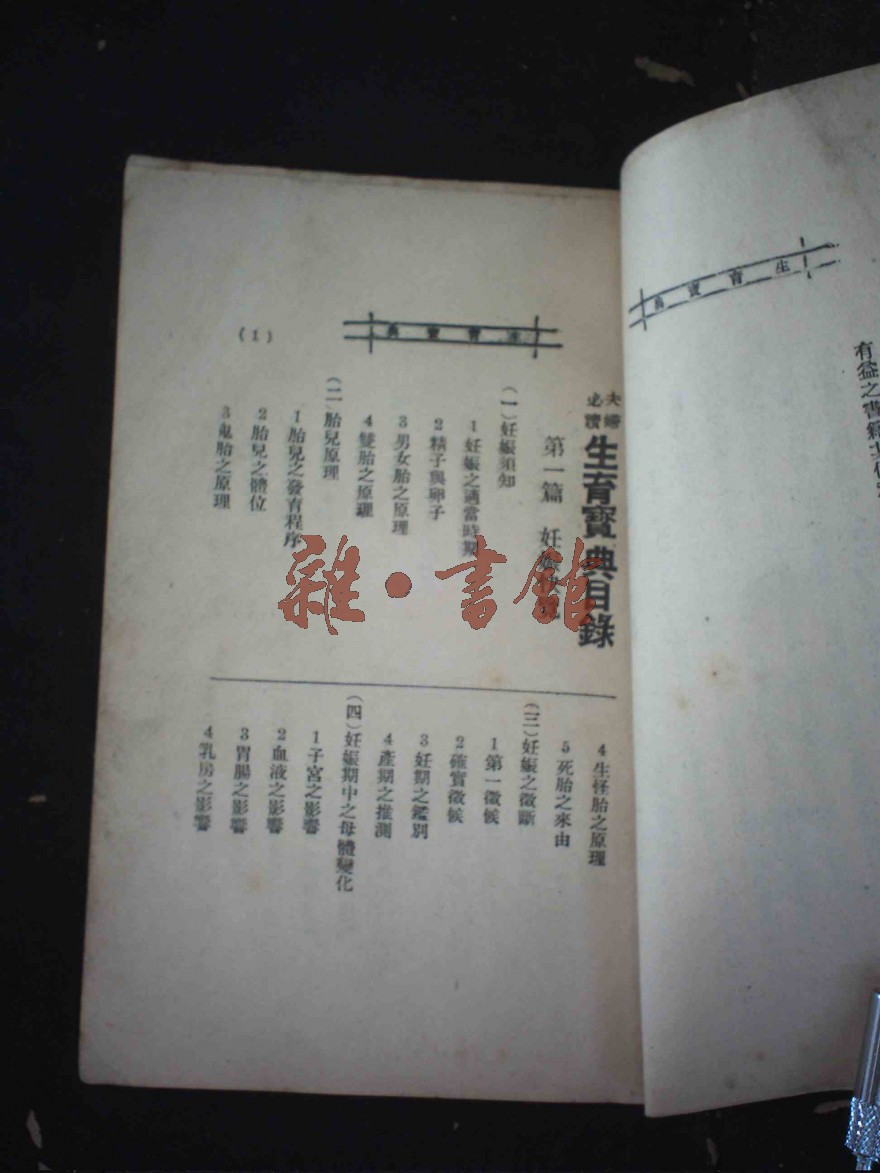 生育寶典
有益之書籍
夫婦必讀
生育寶典目錄
第一篇 妊娠
(一)妊娠須知
1 妊娠之適當時期
2 精子與卵子
3 男女胎之原理
4 雙胎之原理
(二)胎兒原理
1 胎兒之發育程序
2 胎兒之體位
3 鬼胎之原理
4 生怪胎之原理
5 死胎之來由
(三)妊娠之徵斷
1 第一徵候
2 確實徵候
3 妊期之鑑別
4 產期之推測
(四)妊娠期中之母體變化
1 子宮之影響
2 血液之影響
3 胃腸之影響
4 乳房之影響
生育寶典
(1)
雜·書館